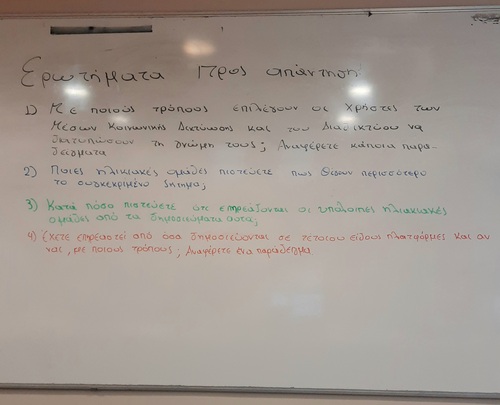 Ερωτήματα προς απάντηση
1) Με ποιούς τρόπους επιλέγουν οι Χρήστες των
Μέσων Κοινωνικής Δικτύωσης και του Διαδικτύου να
διατυπώσουν τη γνώμη τους; Αναφέρετε κάποια παρα-
δείγματα
2) Ποιες ηλικιακές ομάδες πιστεύετε πως θίγουν περισσότερο
το συγκεκριμένο ζήτημα;
3) Κατά πόσο πιστεύετε ότι επηρεάζονται οι υπόλοιπες ηλικιακές
ομάδες από τα δημοσιεύματα αυτά;
4) Έχετε επηρεαστεί από όσα δημοσιεύονται σε τέτοιου είδους πλατφόρμες και αν
ναι, με ποιους τρόπους; Αναφέρετε ένα παράδειγμα.